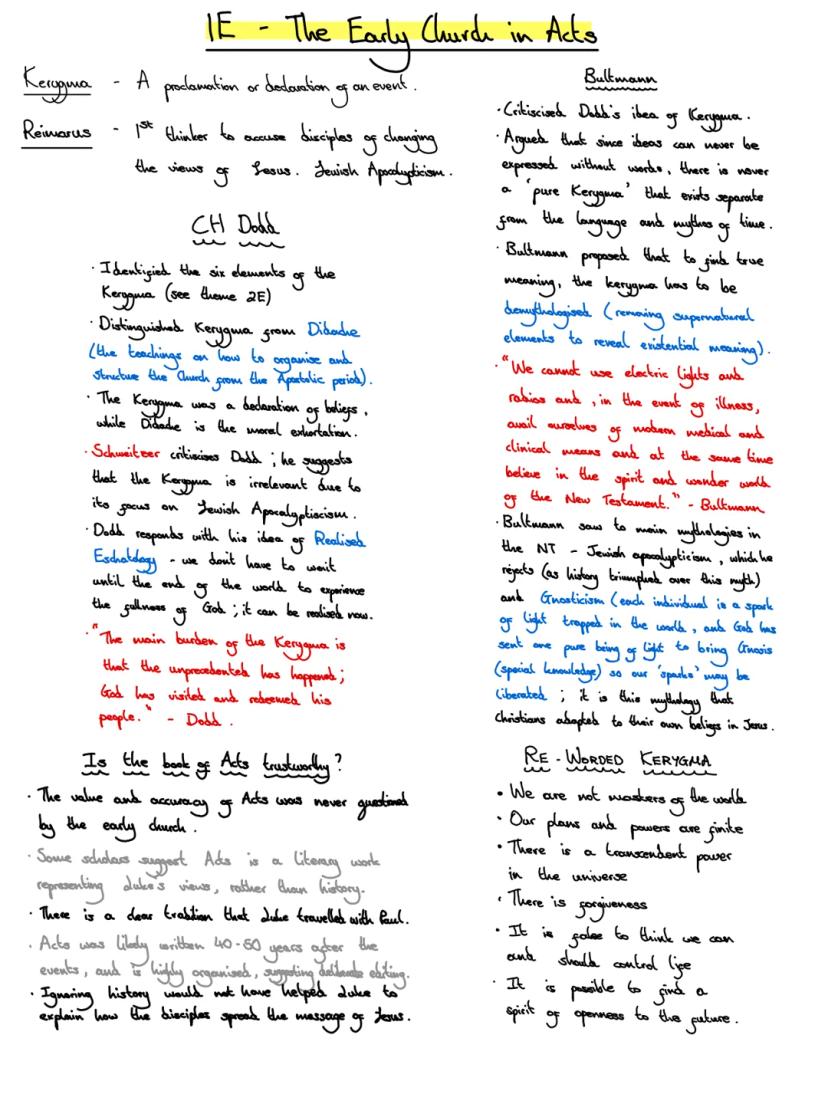 1E - The Early Church in Acts
Kerygma - A proclamation or declaration of an event.
Reimarus - 1st thinker to accuse disciples of changing
the views of Jesus. Jewish Apocalypticism.
CH Dodd
· Identified the six elements of the
Kerygma (see theme 2E)
· Distinguished Kerygma from Didache
(the teachings on how to organise and
structure the Church from the Apostolic period).
· The Kerygma was a declaration of beliefs,
while Didache is the moral exhortation.
· Schweitzer criticises Dodd; he suggests
that the Kerygma is irrelevant due to
its focus on Jewish Apocalypticism.
· Dodd responds with his idea of Realised
Eschatology - we don't have to wait
until the end of the world to experience
the fullness of God; it can be realised now.
· "The main burden of the Kerygma is
that the unprecedented has happened;
God has visited and redeemed his
people." - Dodd.
Is the book of Acts trustworthy?
· The value and accuracy of Acts was never questioned
by the early church.
· Some scholars suggest Acts is a literary work
representing Luke's views, rather than history.
· There is a clear tradition that Luke travelled with Paul.
· Acts was likely written 40-50 years after the
events, and is highly organised, suggesting deliberate editing.
· Ignoring history would not have helped Luke to
explain how the disciples spread the message of Jesus.
Bultmann
· Critiscised Dodd's idea of Kerygma.
· Argued that since ideas can never be
expressed without words, there is never
a 'pure Kerygma' that exists separate
from the language and mythos of time.
· Bultmann proposed that to find true
meaning, the kerygma has to be
demythologised (removing supernatural
elements to reveal existential meaning).
· "We cannot use electric lights and
radios and, in the event of illness,
avail ourselves of modern medical and
clinical means and at the same time
believe in the spirit and wonder world
of the New Testament." - Bultmann
· Bultmann saw to main mythologies in
the NT - Jewish apocalypticism, which he
rejects (as history triumphed over this myth)
and Gnosticism (each individual is a spark
of light trapped in the world, and God has
sent one pure being of light to bring Gnosis
(special knowledge) so our 'sparks' may be
liberated; it is this mythology that
Christians adapted to their own beliefs in Jesus.
RE-WORDED KERYGMA
• We are not maskers of the world
• Our plans and powers are finite
• There is a transcendent power
in the universe
· There is forgiveness
• It is false to think we can
and should control life
· It is possible to find a
spirit of openness to the future.